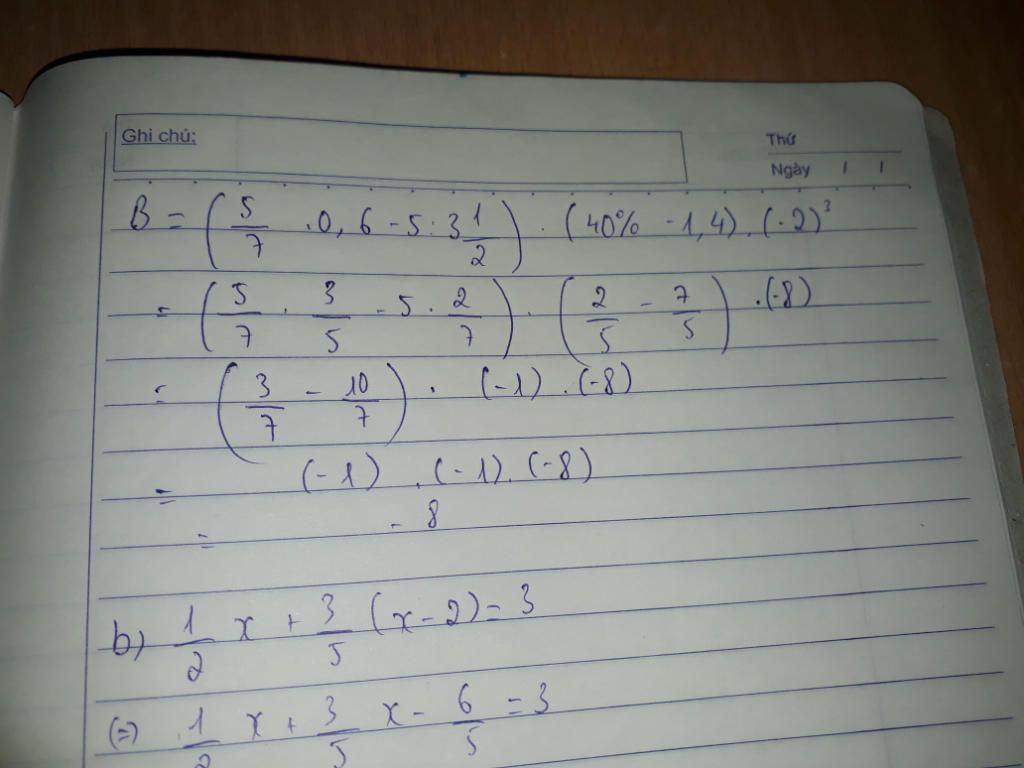 Ghi chú:
Thứ
Ngày / /
B = (5/7 . 0,6 - 5 : 3 1/2) . (40% - 1,4) . (-2)³
= (5/7 . 3/5 - 5 . 2/7) . (2/5 - 7/5) . (-8)
= (3/7 - 10/7) . (-1) . (-8)
= (-1) . (-1) . (-8)
= - 8
b) 1/2 x + 3/5 (x - 2) = 3
(=) 1/2 x + 3/5 x - 6/5 = 3